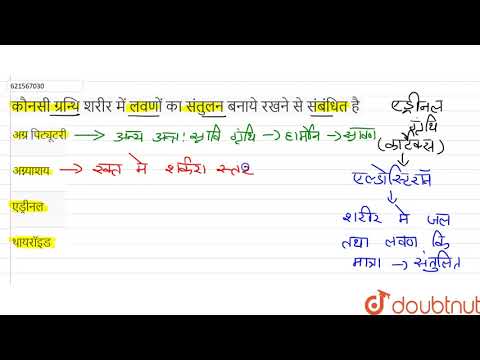 621567030
कौनसी ग्रन्थि शरीर में लवणों का संतुलन बनाये रखने से संबंधित है
अग्र पिट्यूटरी → अन्य अन्तः स्रावि ग्रंथि → हार्मोन → स्रावण
अग्न्याशय → रक्त मे शर्करा स्तर
एड्रीनल
थायरॉइड
एड्रीनल
ग्रंथि
(कार्टेक्स)
एल्डोस्टिरॉन
शरीर मे जल
तथा लवण कि
मात्रा → संतुलित
doubtnut